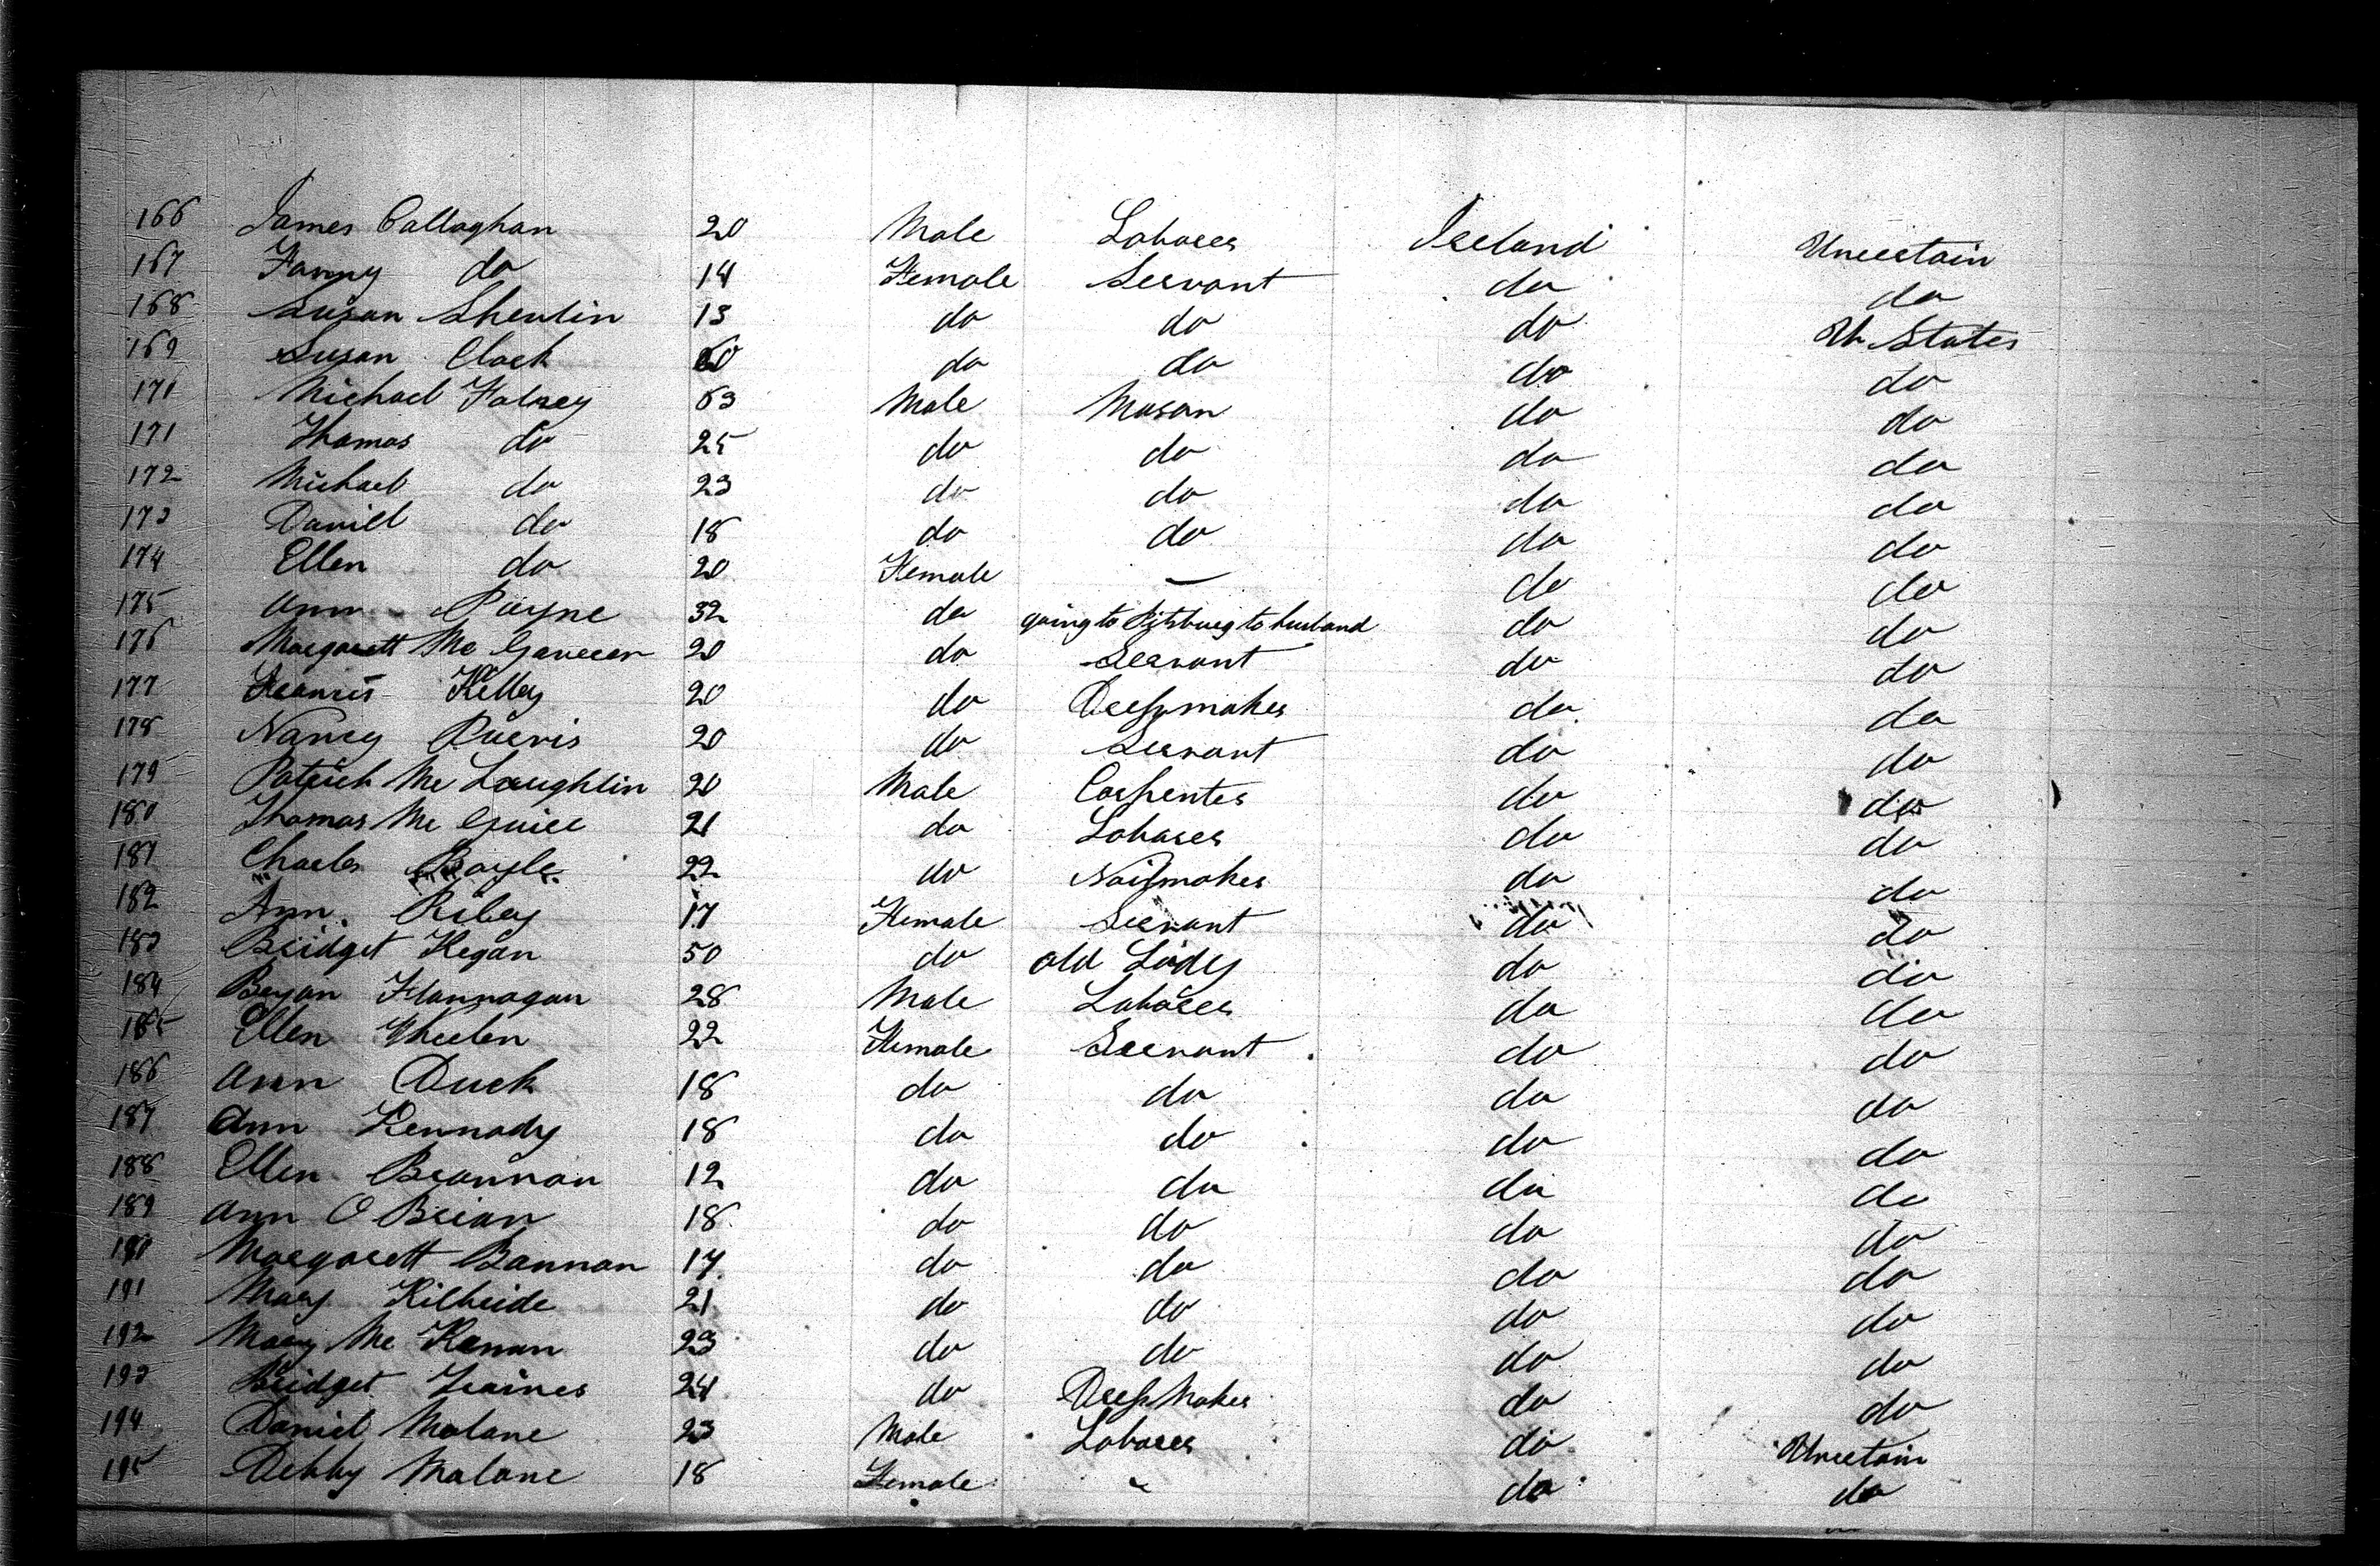 166 James Callaghan 20 Male Labourer Ireland Uncertain
167 Fanny do 14 Female Servant do do
168 Susan Sherlin 13 do do do Un States
169 Susan Clark 60 do do do do
171 Michael Falney 63 Male Mason do do
171 Thomas do 25 do do do do
172 Michael do 23 do do do do
173 Daniel do 18 do do do do
174 Ellen do 20 Female — do do
175 Ann Payne 32 do going to Pitsburg to husband do do
176 Margarett Mc 20 do Servant do do
177 Francis Kelley 20 do Dressmaker do do
178 Nancy 20 do Servant do do
179 Patrick Mc Laughlin 20 Male Carpenter do do
180 Thomas Mc Guire 21 do Labourer do do
181 Charles Boyle 22 do Nailmaker do do
182 Ann Riley 17 Female Servant do do
183 Bridget Kegan 50 do old Lady do do
184 Bryan Flannagan 28 Male Labourer do do
185 Ellen Wheelen 22 Female Servant do do
186 Ann Duck 18 do do do do
187 Ann Kennady 18 do do do do
188 Ellen Brannan 12 do do do do
189 Ann O Brian 18 do do do do
190 Margarett Bannan 17 do do do do
191 Mary Kilbride 21 do do do do
192 Mary Mc Kenan 23 do do do do
193 Bridget 24 do Dress Maker do do
194 Daniel Malane 23 Male Labourer do Uncertain
195 Debby Malane 18 Female do do